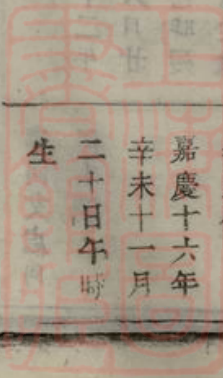 嘉慶十六年
辛未十一月
二十日午时
生